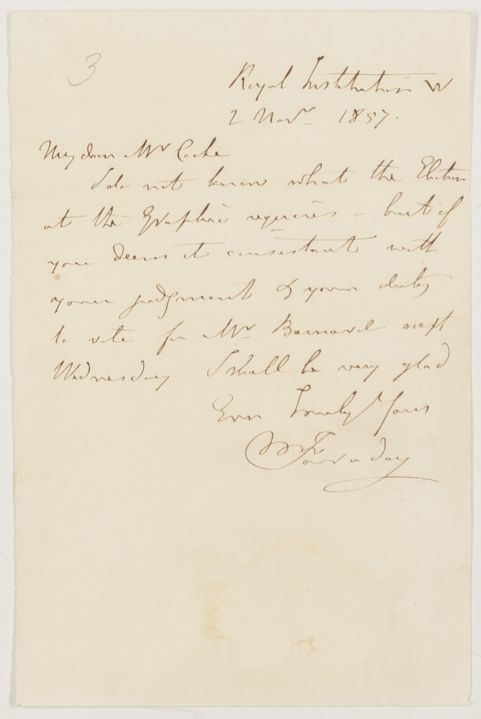 3
Royal Institution W
2 Novr. 1857.
My dear Mr Cocke
I do not know what the Election
at the Graphic requires - but if
you deem it consistent with
your judgment & your duty
to vote for Mr Barnard next
Wednesday I shall be very glad
Ever Truly Yours
M Faraday